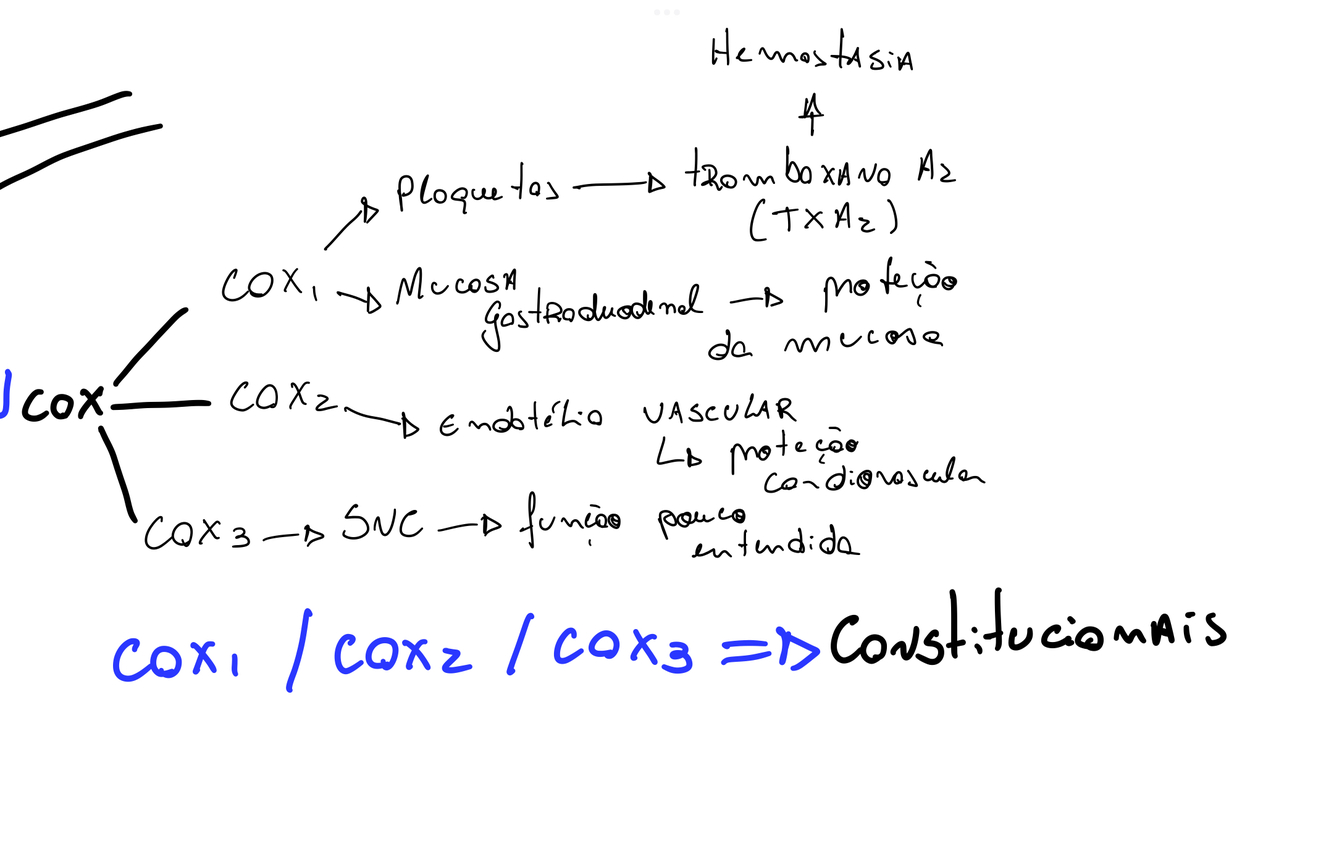 HemostASiA
Plaquetas → tRomboxANO A2
(TXA2)
COX1 → MucosA
gastRoduodenal → proteção
da mucosa
COX
COX2 → Endotélio VASCULAR
↳ proteção
cardiovascular
COX3 → SNC → função pouco
entendida
COX1 / COX2 / COX3 => ConstitucionAis